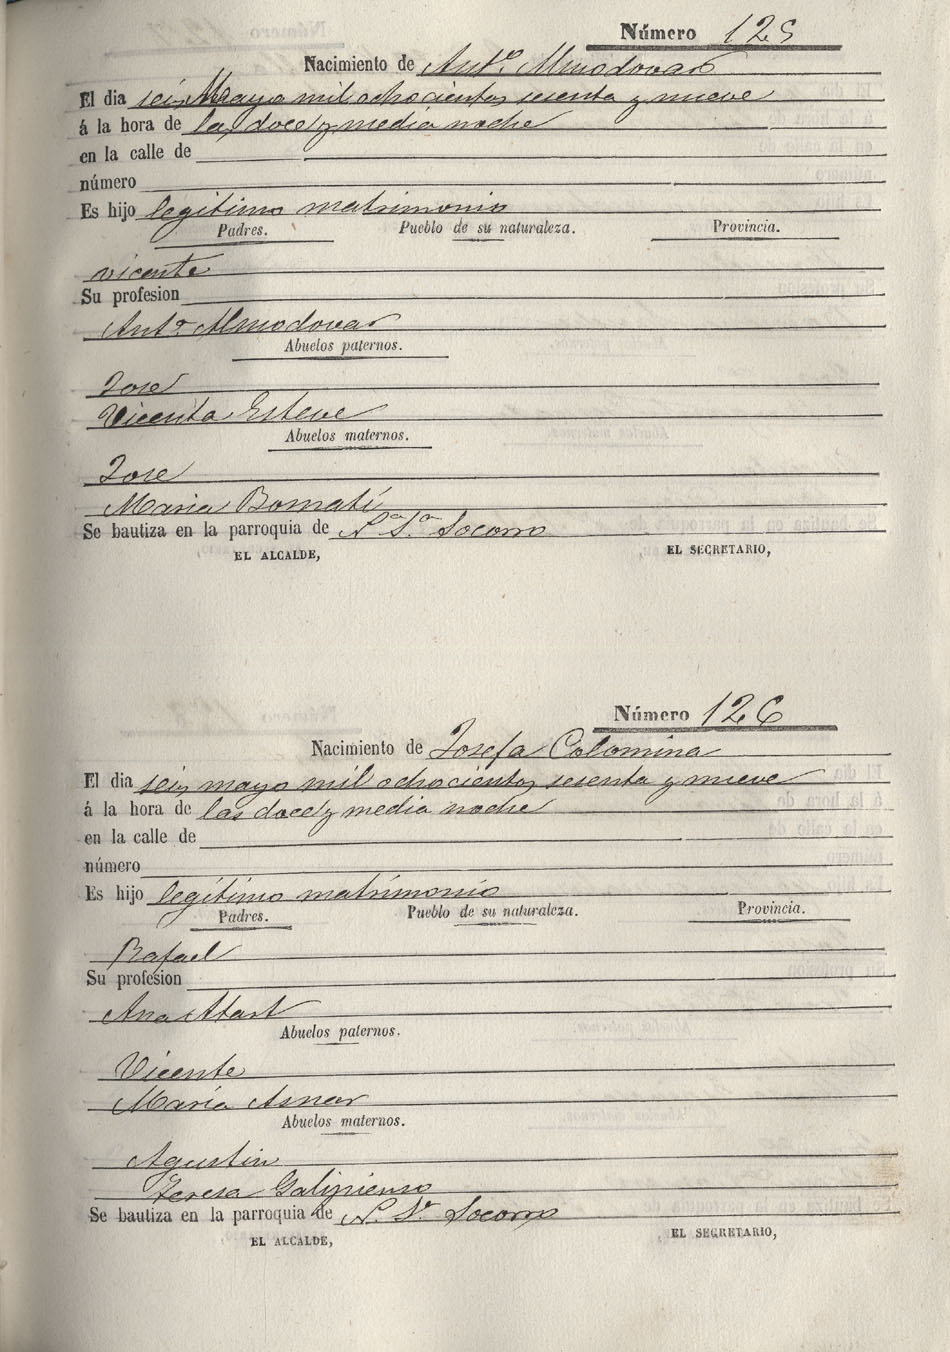 Número 125
Nacimiento de Antº Almodovar
El dia seis Mayo mil ochocientos sesenta y nueve
á la hora de las doce y media noche
en la calle de
número
Es hijo legitimo matrimonio
Padres. Pueblo de su naturaleza. Provincia.
Vicente
Su profesion
Antª Almodovar
Abuelos paternos.
Jose
Vicenta Esteve
Abuelos maternos.
Jose
Maria Bomatí
Se bautiza en la parroquia de Nª Sª Socorro
EL ALCALDE, EL SECRETARIO,
Número 126
Nacimiento de Josefa Colomina
El dia seis mayo mil ochocientos sesenta y nueve
á la hora de las doce y media noche
en la calle de
número
Es hijo legitimo matrimonio
Padres. Pueblo de su naturaleza. Provincia.
Rafael
Su profesion
Ana
Abuelos paternos.
Vicente
Maria Asnar
Abuelos maternos.
Agustin
Teresa Galipienso
Se bautiza en la parroquia de N. Sª Socorro
EL ALCALDE, EL SECRETARIO,